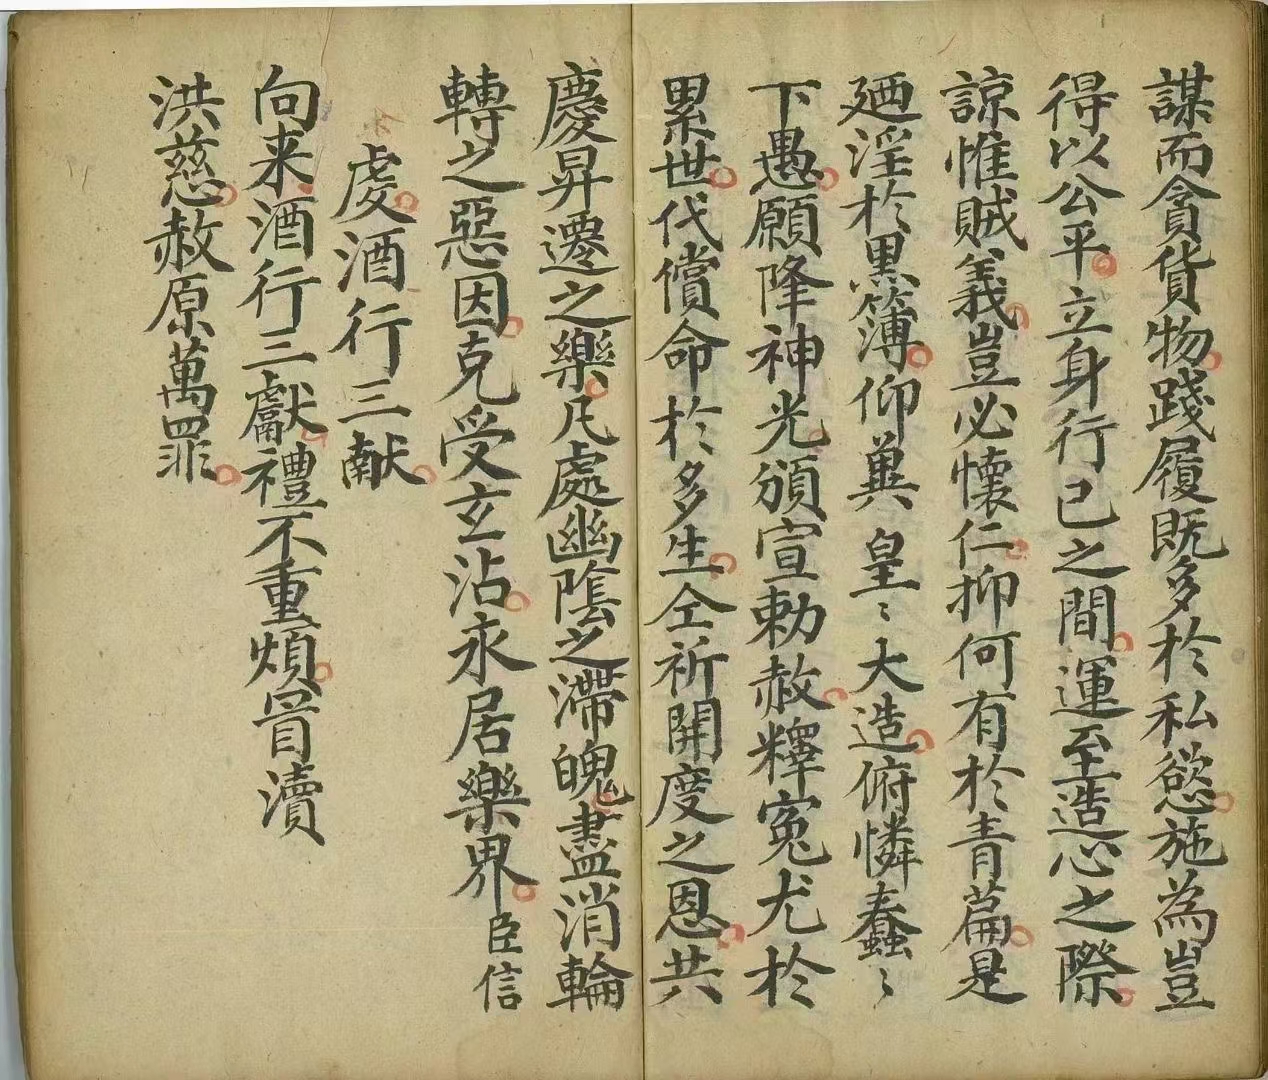 謀而貪貨物踐履既多於私慾施為豈
得以公平立身行己之間運至造心之際
諒惟賊義豈必懷仁抑何有於青篇是
廼淫於黑簿仰兾皇〻大造俯憐蠢〻
下愚願降神光頒宣勅赦釋寃尤於
累世代償命於多生仝祈開度之恩共
慶昇遷之樂凡處幽陰之滯魄盡消輪
轉之惡因克受玄沾永居樂界臣信
虔酒行三献
向来酒行三獻禮不重煩冒瀆
洪慈赦原萬罪